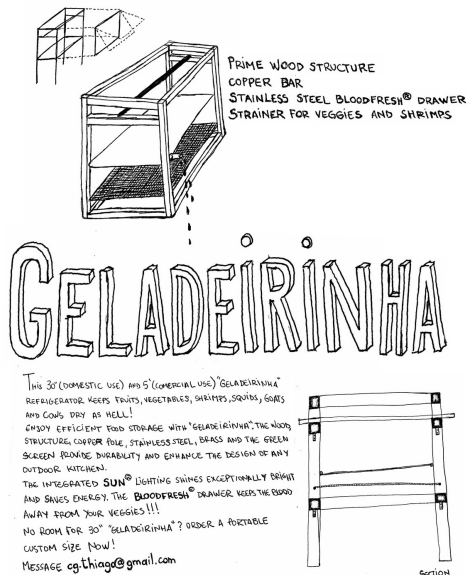 PRIME WOOD STRUCTURE
COPPER BAR
STAINLESS STEEL BLOODFRESH® DRAWER
STRAINER FOR VEGGIES AND SHRIMPS
GELADEIRINHA
THIS 30" (DOMESTIC USE) AND 5' (COMERCIAL USE) "GELADEIRINHA"
REFRIGERATOR KEEPS FRUITS, VEGETABLES, SHRIMPS, SQUIDS, GOATS
AND COWS DRY AS HELL!
ENJOY EFFICIENT FOOD STORAGE WITH "GELADEIRINHA". THE WOOD
STRUCTURE, COPPER POLE, STAINLESS STEEL, BRASS AND THE GREEN
SCREEN PROVIDE DURABILITY AND ENHANCE THE DESIGN OF ANY
OUTDOOR KITCHEN.
THE INTEGRATED SUN® LIGHTING SHINES EXCEPTIONALLY BRIGHT
AND SAVES ENERGY. THE BLOODFRESH® DRAWER KEEPS THE BLOOD
AWAY FROM YOUR VEGGIES!!!
NO ROOM FOR 30" "GELADEIRINHA"? ORDER A PORTABLE
CUSTOM SIZE NOW!
MESSAGE cg.thiago@gmail.com
SECTION